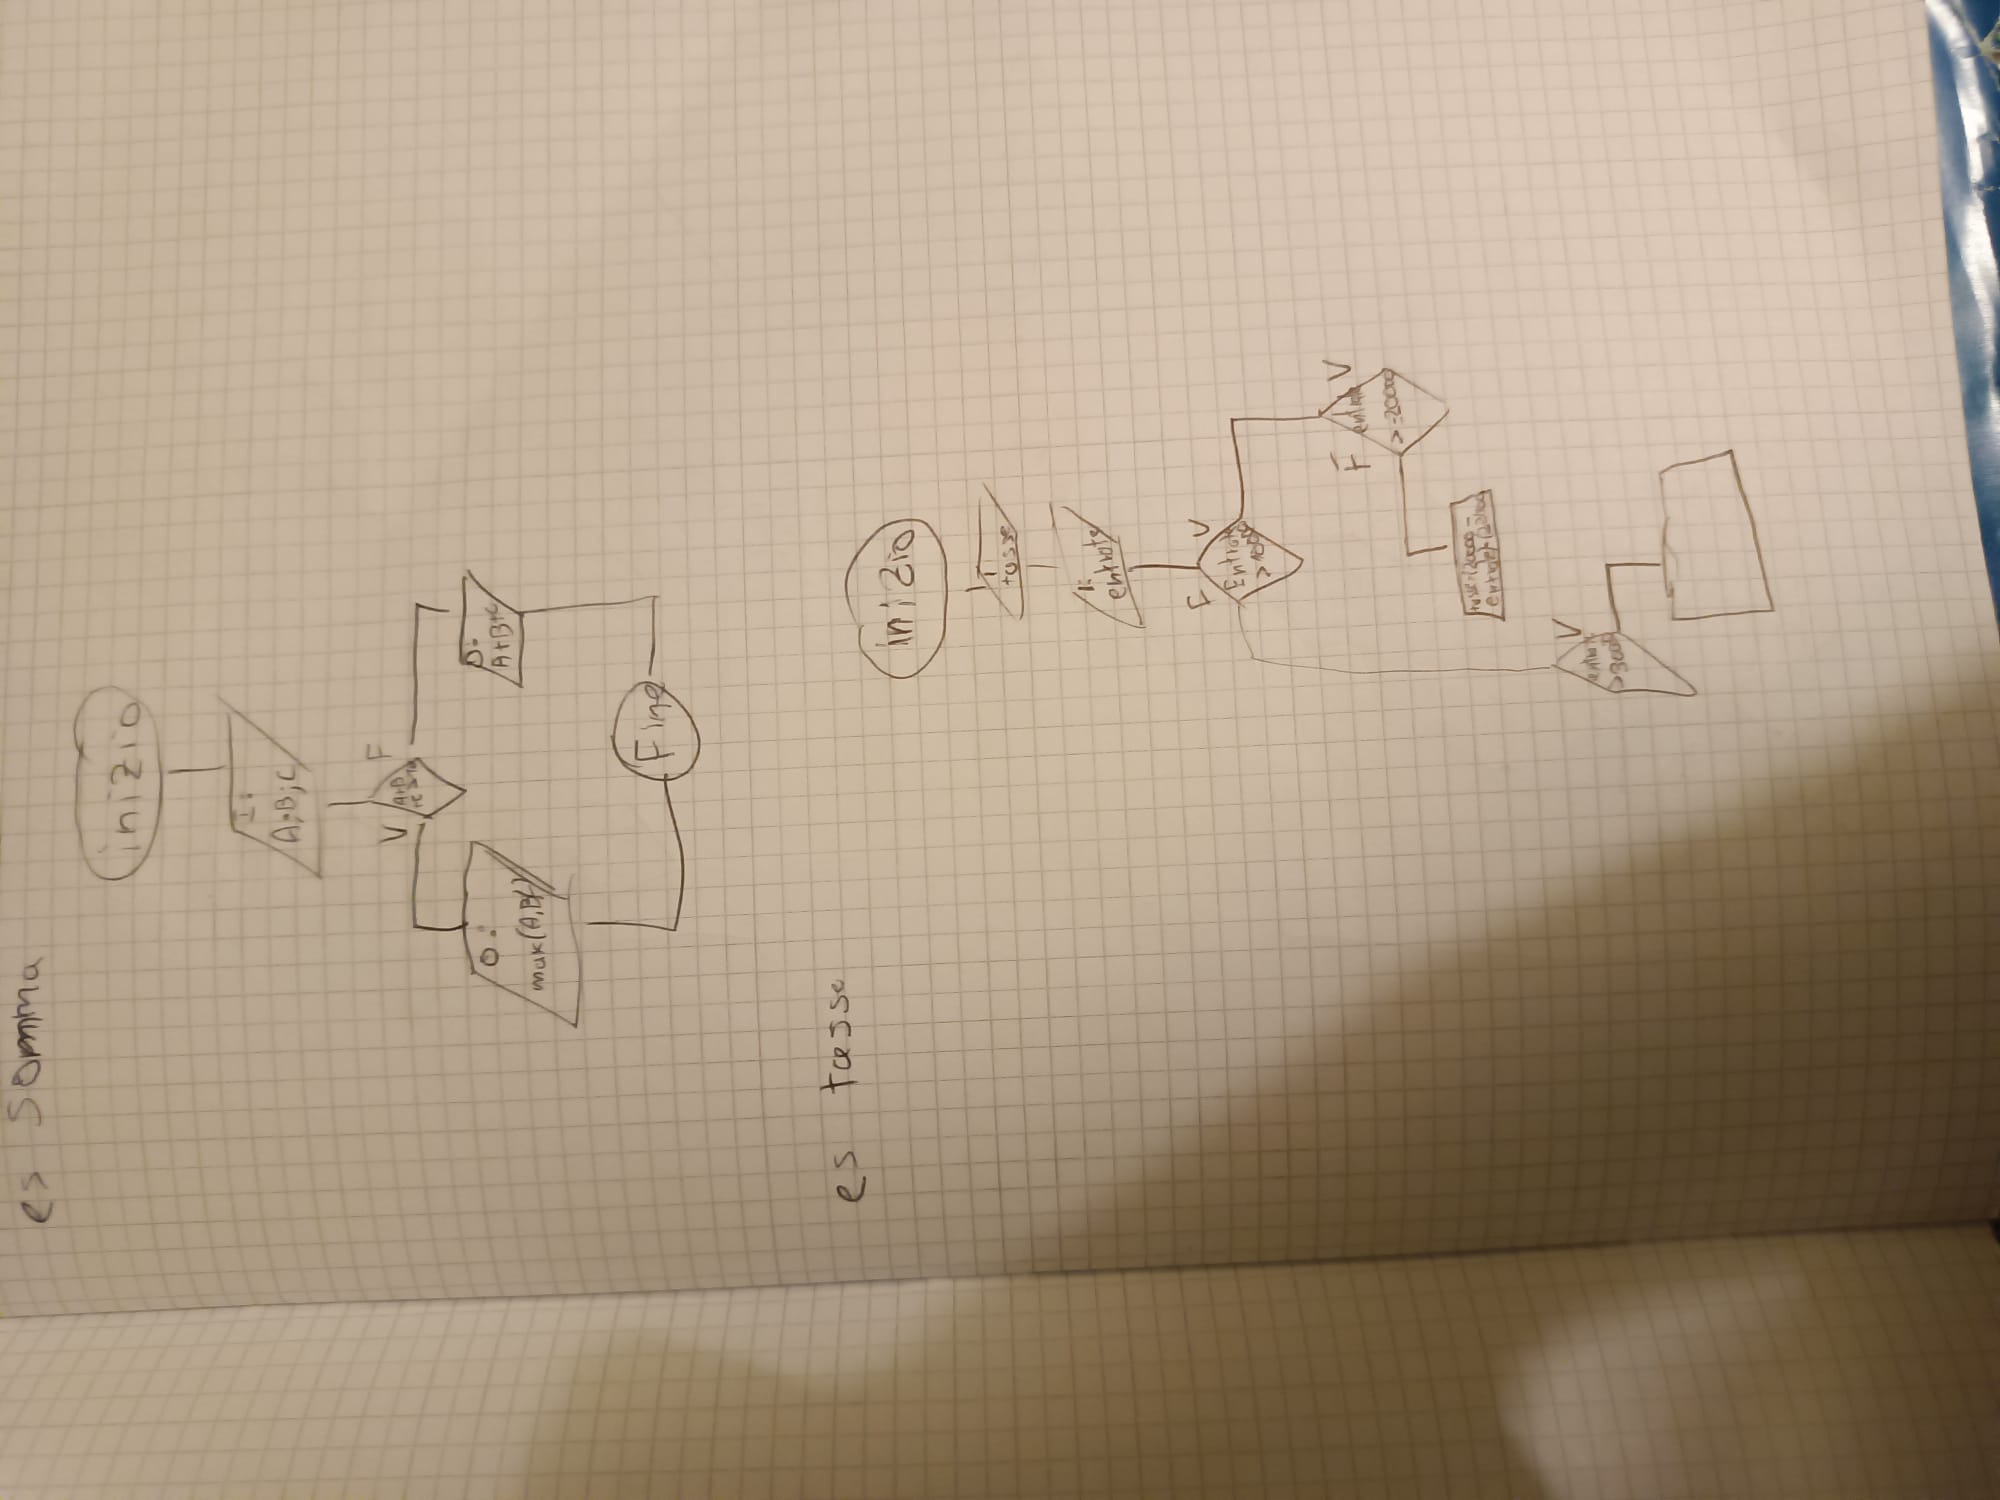 es somma
inizio
I:
A;B;C
V F
A+B
O:
max(A,B,C)
O:
A+B+C
Fine
es tasse
inizio
I:
tasse
I:
entrate
F V
Entrate
F V
entrate
>=20000
entrate
V
entrate